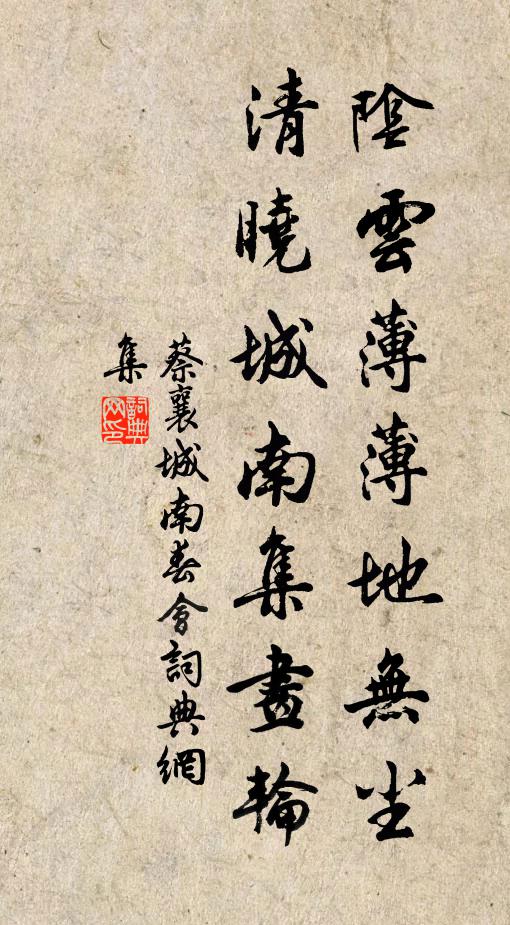 陰雲薄薄地無尘
清曉城南集畫輪
蔡襄城南春會詞典網
集
詞典
网印